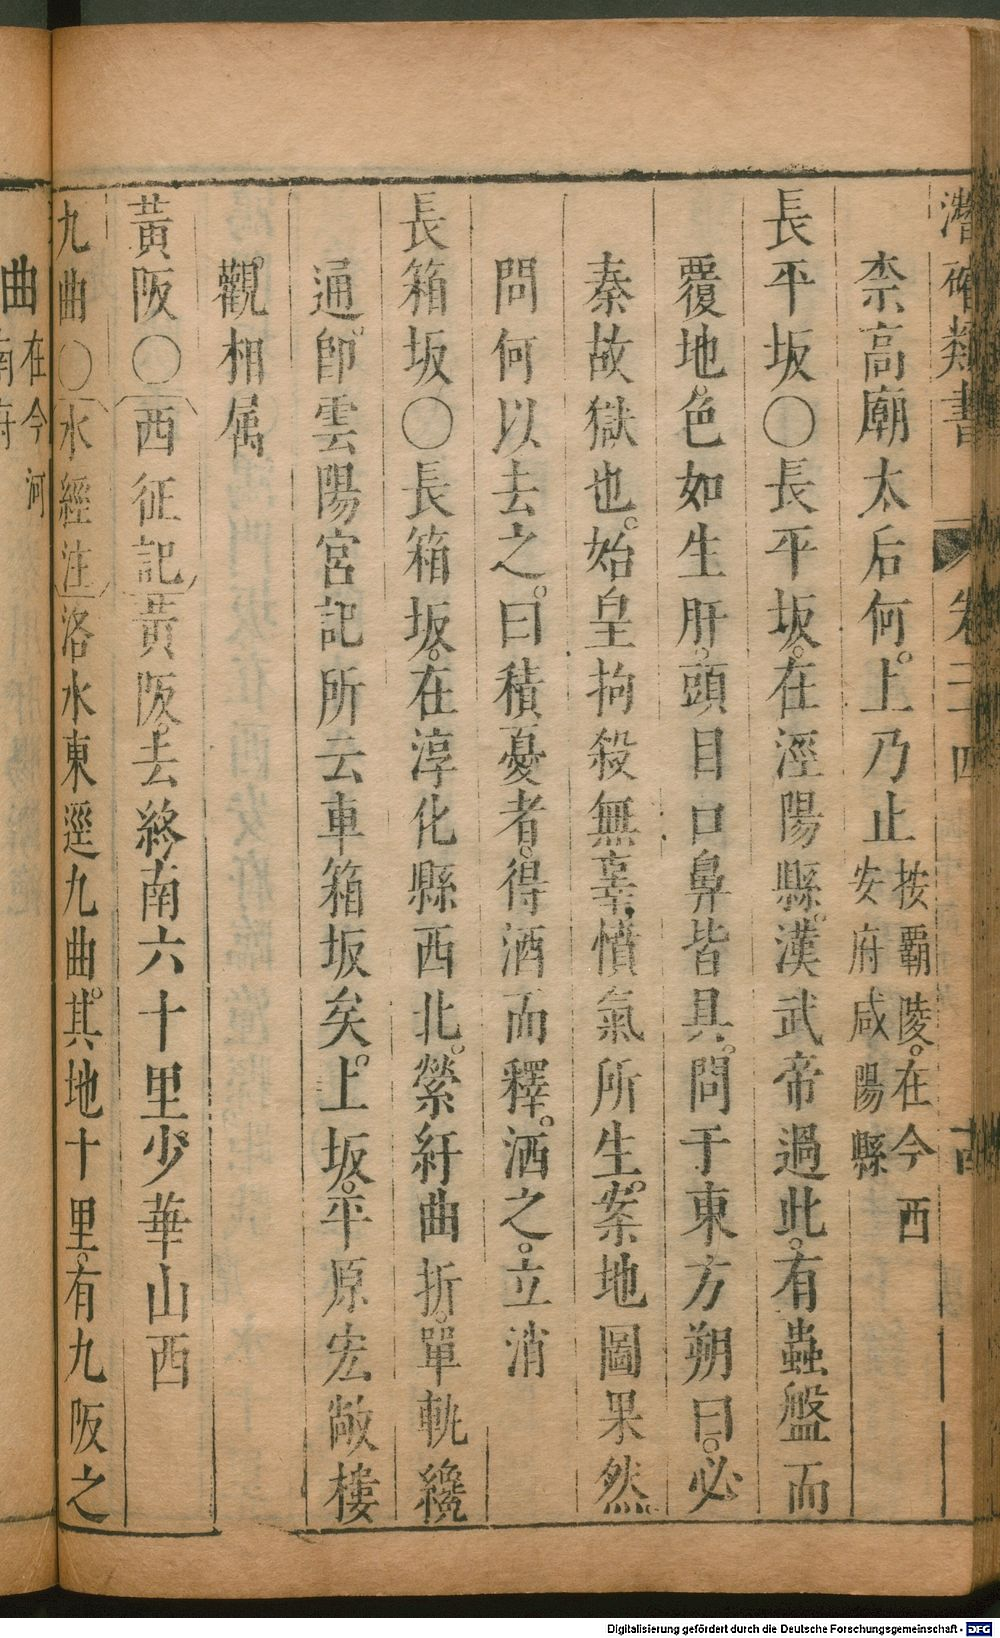 潛確類書 卷二十四
柰高廟太后何。上乃止按霸陵。在今西
安府咸陽縣
長平坂〇長平坂。在涇陽縣。漢武帝過此。有蟲盤而
覆地。色如生肝。頭目口鼻皆具。問于東方朔曰。必
秦故獄也。始皇拘殺無辜。憤氣所生。案地圖果然
問何以去之。曰積憂者。得酒而釋。洒之。立消
長箱坂〇長箱坂。在淳化縣西北。縈紆曲折。單軌纔
通。卽雲陽宮記所云車箱坂矣。上坂。平原宏敞樓
觀。相属
黃阪〇西征記黃阪。去終南六十里少華山西
九曲〇水經注洛水東逕九曲。其地十里。有九阪之
曲在今河
南府
Digitalisierung gefördert durch die Deutsche Forschungsgemeinschaft - DFG